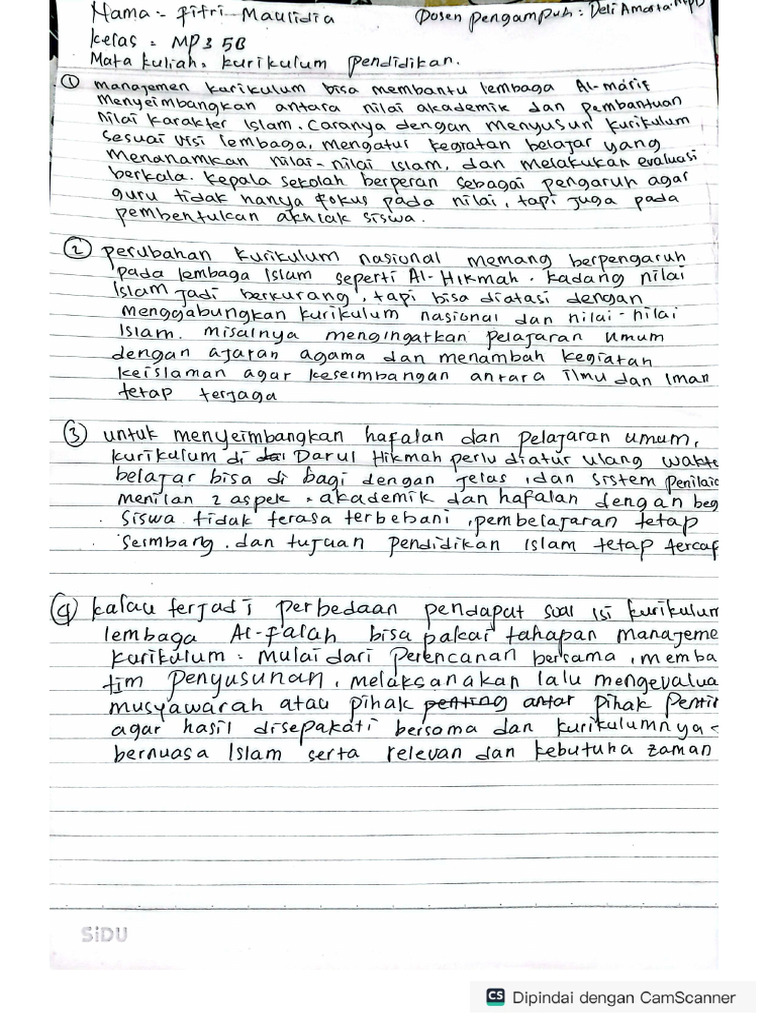 Nama :- Fitri Maulidia Dosen Pengampuh : Deli Amasta MPD
kelas : MP3 5B
Mata kuliah : kurikulum pendidikan.
① manajemen kurikulum bisa membantu lembaga Al-maris
Menyeimbangkan antara nilai akademik dan pembantuan
Nilai karakter Islam. Caranya dengan menyusun kurikulum
Sesuai visi lembaga, mengatur kegiatan belajar yang
menanamkan nilai-nilai islam, dan melakukan evaluasi
berkala. kepala sekolah berperan sebagai pengaruh agar
guru tidak hanya fokus pada nilai, tapi juga pada
pembentukan akhlak siswa.
② perubahan kurikulum nasional memang berpengaruh
pada lembaga Islam seperti Al-Hikmah. kadang nilai
Islam jadi berkurang, tapi bisa diatasi dengan
menggabungkan kurikulum nasional dan nilai-nilai
Islam. misalnya mengingatkan pelajaran umum
dengan ajaran agama dan menambah kegiatan
keislaman agar keseimbangan antara ilmu dan iman
tetap terjaga
③ untuk menyeimbangkan hafalan dan pelajaran umum,
kurikulum di Darul Hikmah perlu diatur ulang wakte
belajar bisa di bagi dengan jelas, dan sistem penilaic
menilan 2 aspek. akademik dan hafalan dengan beg
Siswa tidak terasa terbebani, pembelajaran tetap
Seimbang. dan tujuan pendidikan Islam tetap tercap
④ kalau terjadi perbedaan pendapat soal isi kurikulum
lembaga Al-falah bisa pakai tahapan manajeme
kurikulum : mulai dari perencanan bersama, memba
tim penyusunan, melaksanakan lalu mengevalua
musyawarah atau pihak penting antar pihak Pentir
agar hasil disepakati bersama dan kurikulumnya
bernuasa Islam serta relevan dan kebutuha zaman
SiDU
CS Dipindai dengan CamScanner